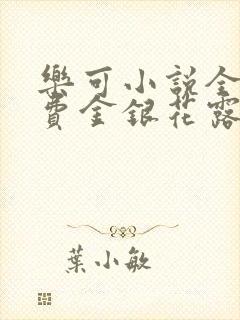 樂可小說全
費金銀花露
葉小敏